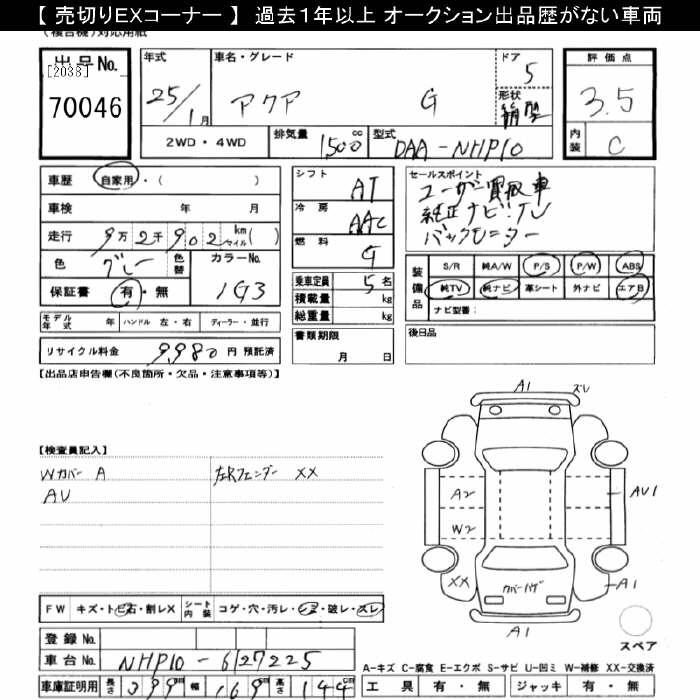 【 売切りEXコーナー 】 過去１年以上 オークション出品歴がない車両
(複合機)対応用紙
出品No. [2038] 70046
年式 25/1月
車名・グレード アクア G
ドア 5
形状 箱型
2WD・4WD
排気量 1500 cc
型式 DAA-NHP10
評価点 3.5
内装 C
車歴 自家用・( )
車検 年 月
走行 9万2千902 km マイル( )
色 グレー 色替 カラーNo. 1G3
保証書 有・無
シフト AT
冷房 AAC
燃料 G
乗車定員 5名
積載量 kg
総重量 kg
書類期限 月 日
セールスポイント
ユーザー買取車
純正ナビ・TV
バックモニター
装備品 S/R 純A/W P/S P/W ABS
純TV 純ナビ 革シート 外ナビ エアB
ナビ型番:
モデル年式 年 ハンドル 左・右 ディーラー・並行
リサイクル料金 9,980 円 預託済
後日品
【出品店申告欄(不良箇所・欠品・注意事項等)】
【検査員記入】
Wカバー A
AU
左Rフェンダー XX
A1 ズレ
A2
W2
AU1
XX
カバーハゲ
A1
A1
スペア
FW キズ・トビ石・割レX
シート内装 コゲ・穴・汚レ・シミ・破レ・スレ
登録No.
車台No. NHP10-6127225
車庫証明用 長さ 399cm 幅 169cm 高さ 144cm
A-キズ C-腐食 E-エクボ S-サビ U-凹ミ W-補修 XX-交換済
工具 有・無 ジャッキ 有・無